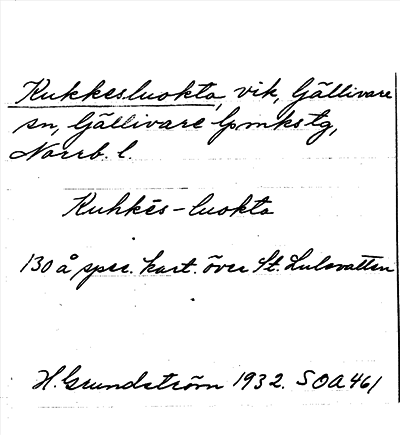 Kukkesluokta, vik, Gällivare
sn, Gällivare lpmkstg,
Norrb. l.
Kuhkēs-luokta
130 å spec. kart. över St. Lulevatten
H. Grundström 1932. SOA 461